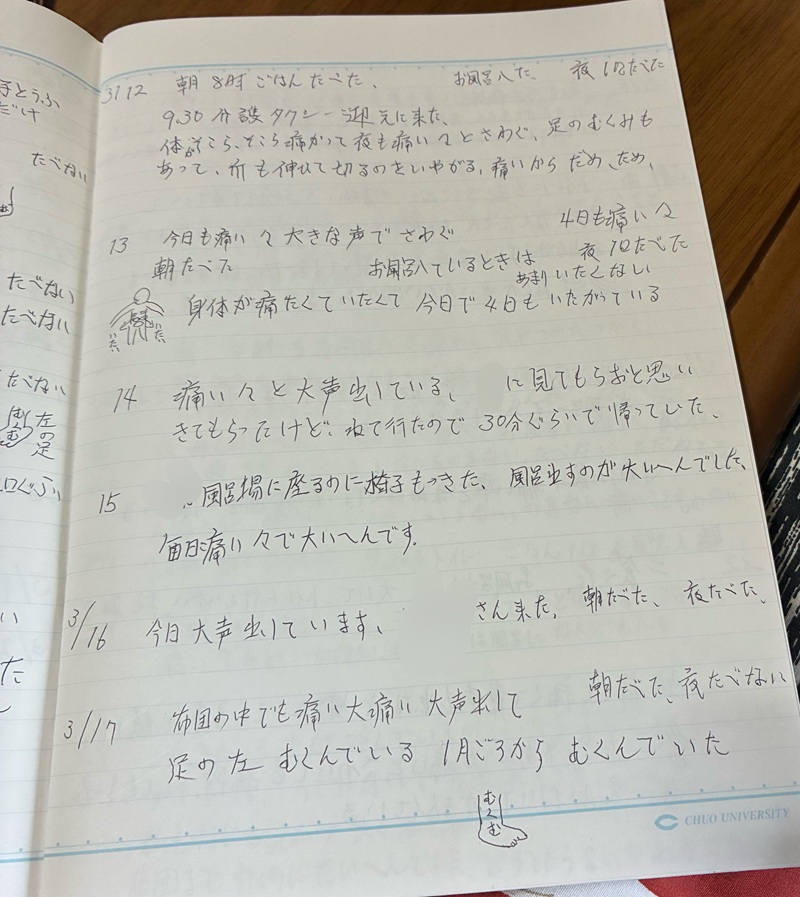 手とうふ
だけ
たべない
たべない
たべない
たべない
左の足
3/12 朝 8時 ごはん たべた、 お風呂入た、 夜 1Pたべた
9.30分 護タクシー 迎えに来た、
体がそこら、そこら痛がって夜も痛い々とさわぐ、足のむくみも
あって、爪も伸びて切るのをいやがる、痛いから だめ、だめ、
13 今日も痛い々大きな声でさわぐ 4日も痛い々
朝たべた お風呂入ているときは 夜 たべた
あまりいたくない
身体が痛たくていたくて 今日で4日も いたがっている
いた いた
14 痛い々と大声出している、 に見てもらおと思い
きてもらったけど、ねて行たので 30分ぐらいで帰っていた、
15 風呂場に座るのに椅子もってきた、 風呂出すのが大いへんでした、
毎日痛い々で大いへんです。
3/16 今日大声出しています、 さん来た、 朝たべた、 夜たべた、
3/17 布団の中でも痛い大痛い 大声出して 朝たべた、夜たべない
足の左 むくんでいる 1月ごろから むくんでいた
むくむ
CHUO UNIVERSITY